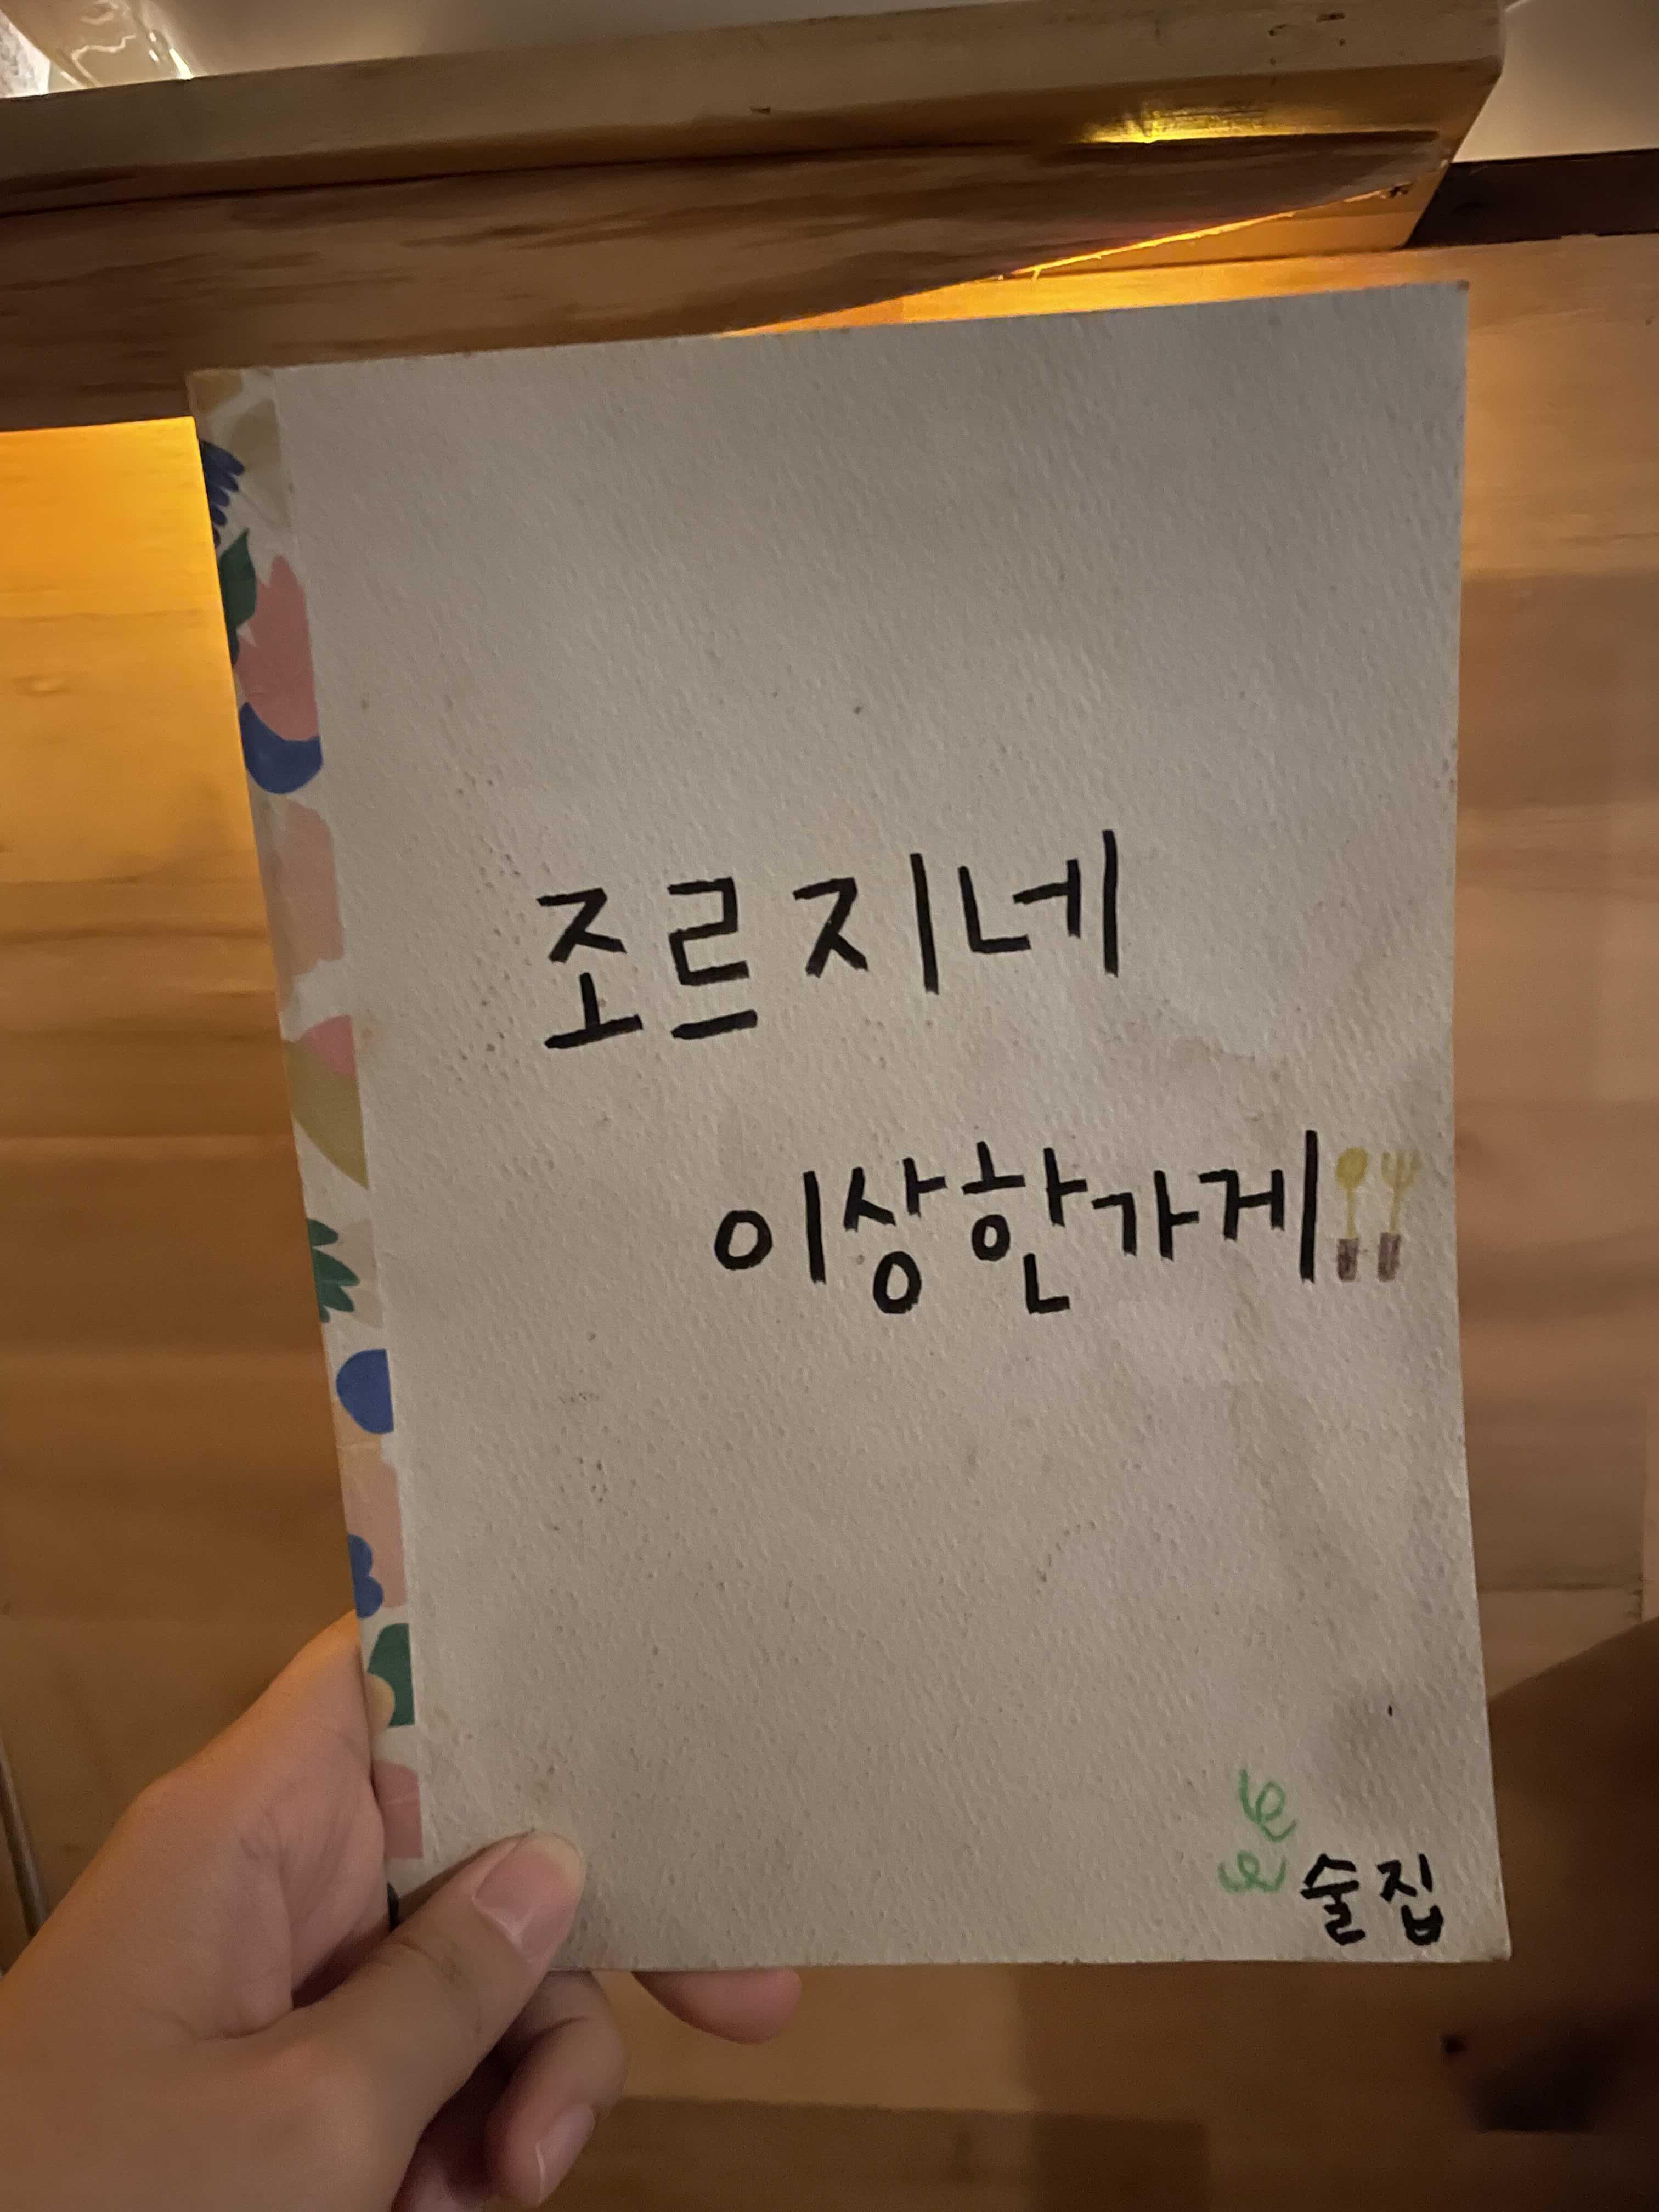 조르지네
이상한가게
술집